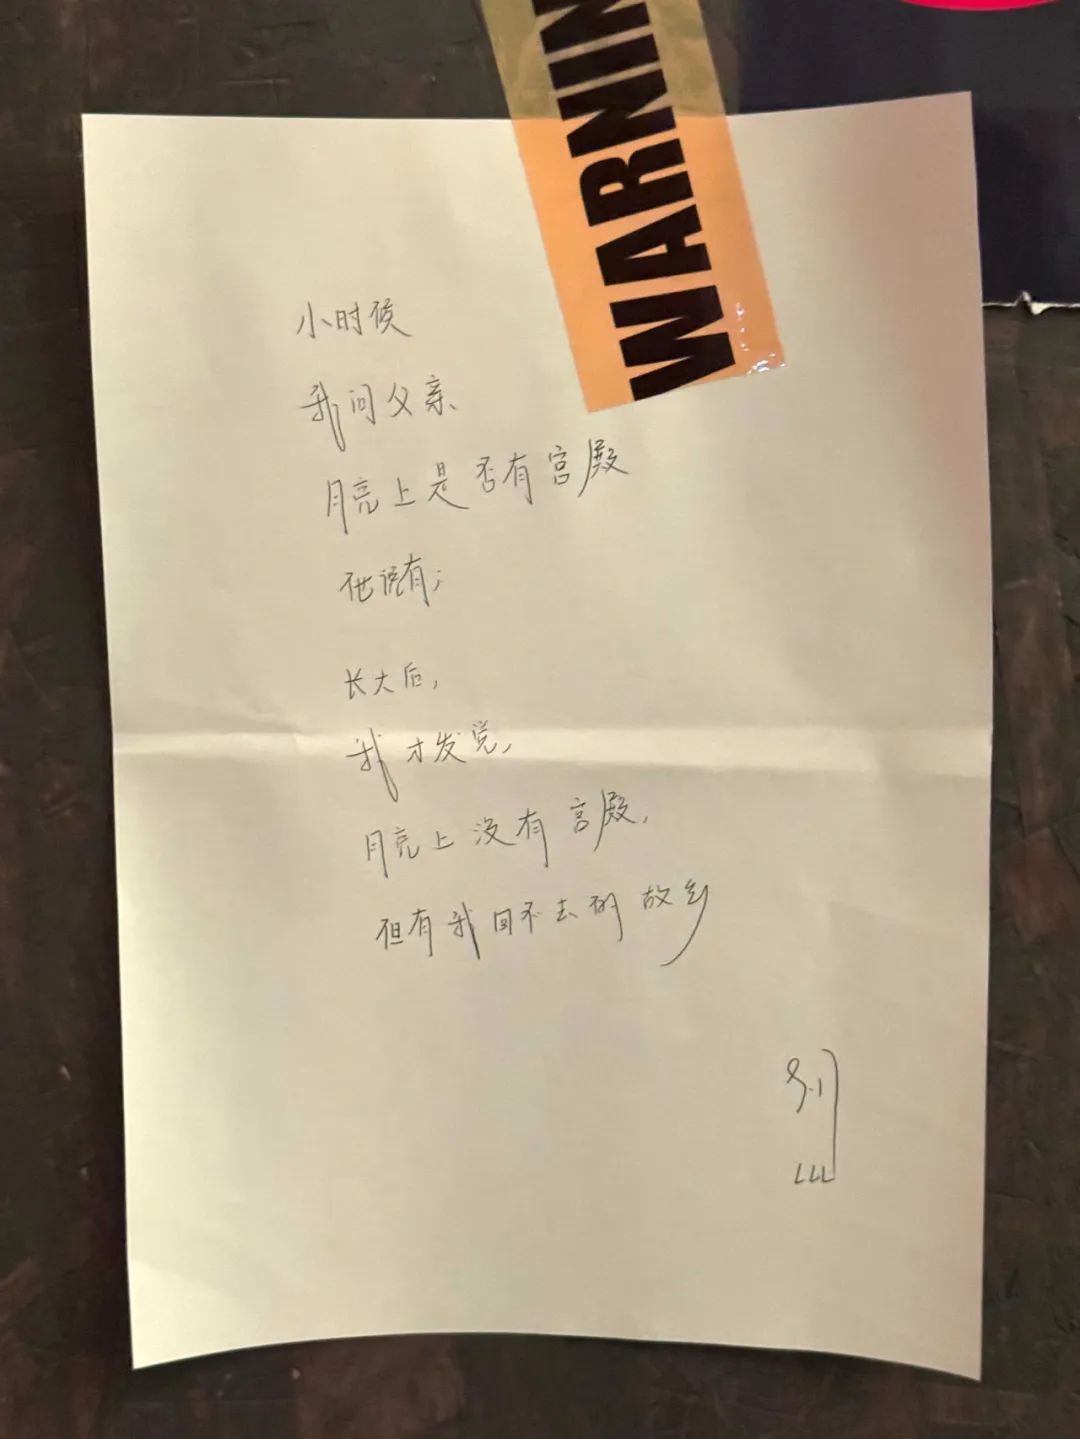 WARNIN
小时候
我问父亲
月亮上是否有宫殿
他说有;
长大后,
我才发觉,
月亮上没有宫殿,
但有我回不去的故乡